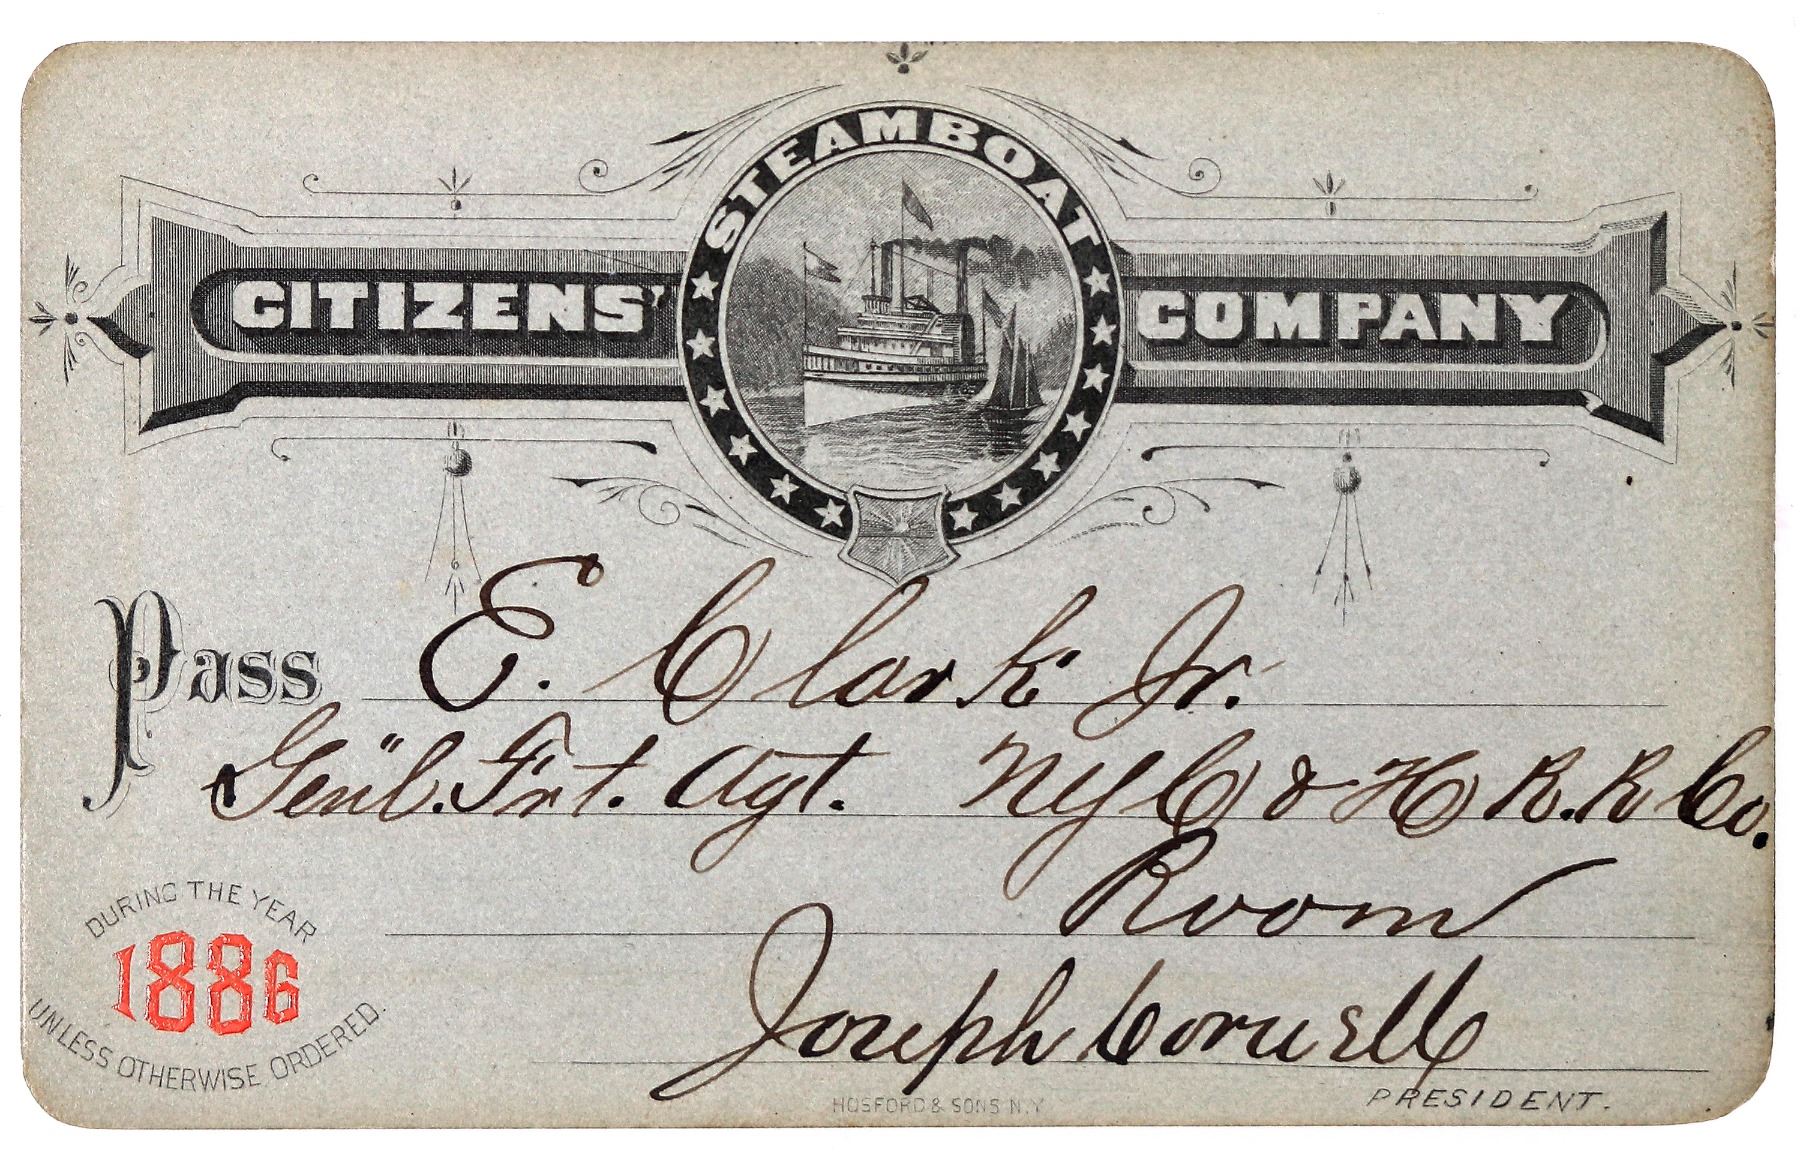 CITIZENS' STEAMBOAT COMPANY
Pass E. Clark Jr.
Gen'l. Frt. Agt. NYC & H R.R Co.
Room
DURING THE YEAR
1886
UNLESS OTHERWISE ORDERED.
Joseph Cornell
PRESIDENT.
HOSFORD & SONS N.Y